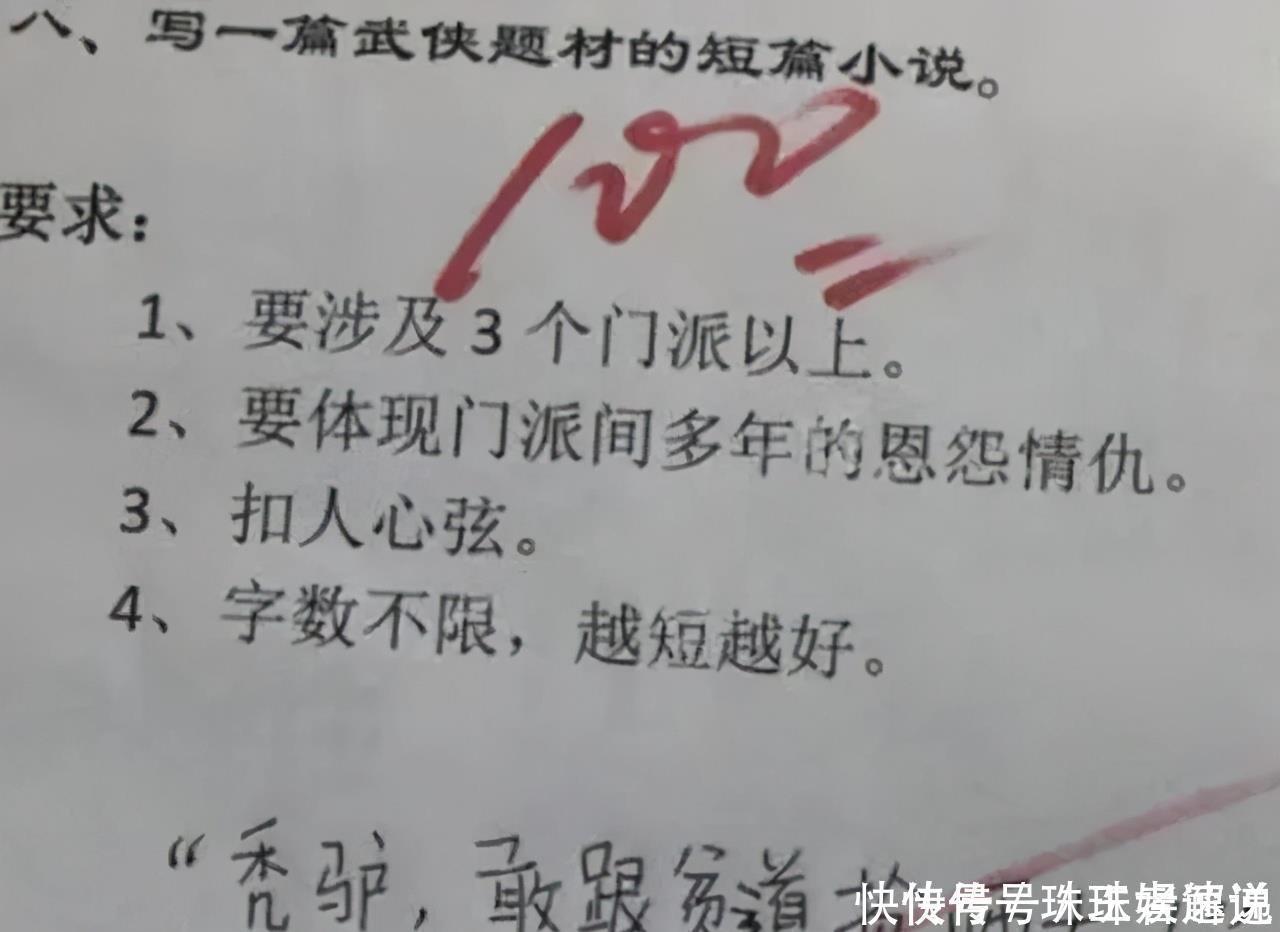 八、写一篇武侠题材的短篇小说。
100
要求：
1、要涉及 3 个门派以上。
2、要体现门派间多年的恩怨情仇。
3、扣人心弦。
4、字数不限，越短越好。
“秃驴，敢跟贫道抢